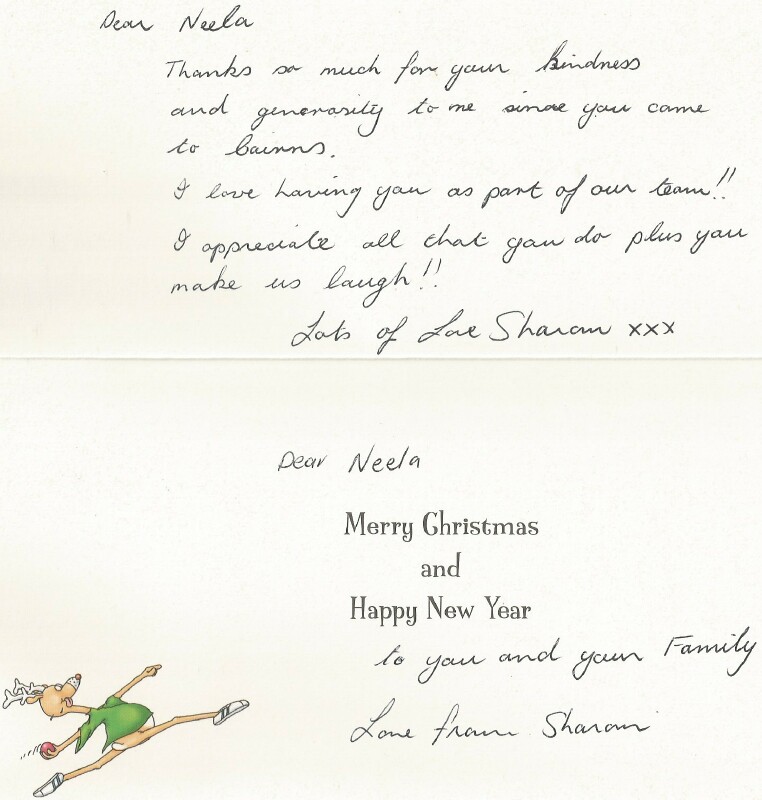 Dear Neela
Thanks so much for your kindness
and generosity to me since you came
to Cairns.
I love having you as part of our team!!
I appreciate all that you do plus you
make us laugh!!
Lots of Love Sharon xxx
Dear Neela
Merry Christmas
and
Happy New Year
to you and your Family
Love from Sharon